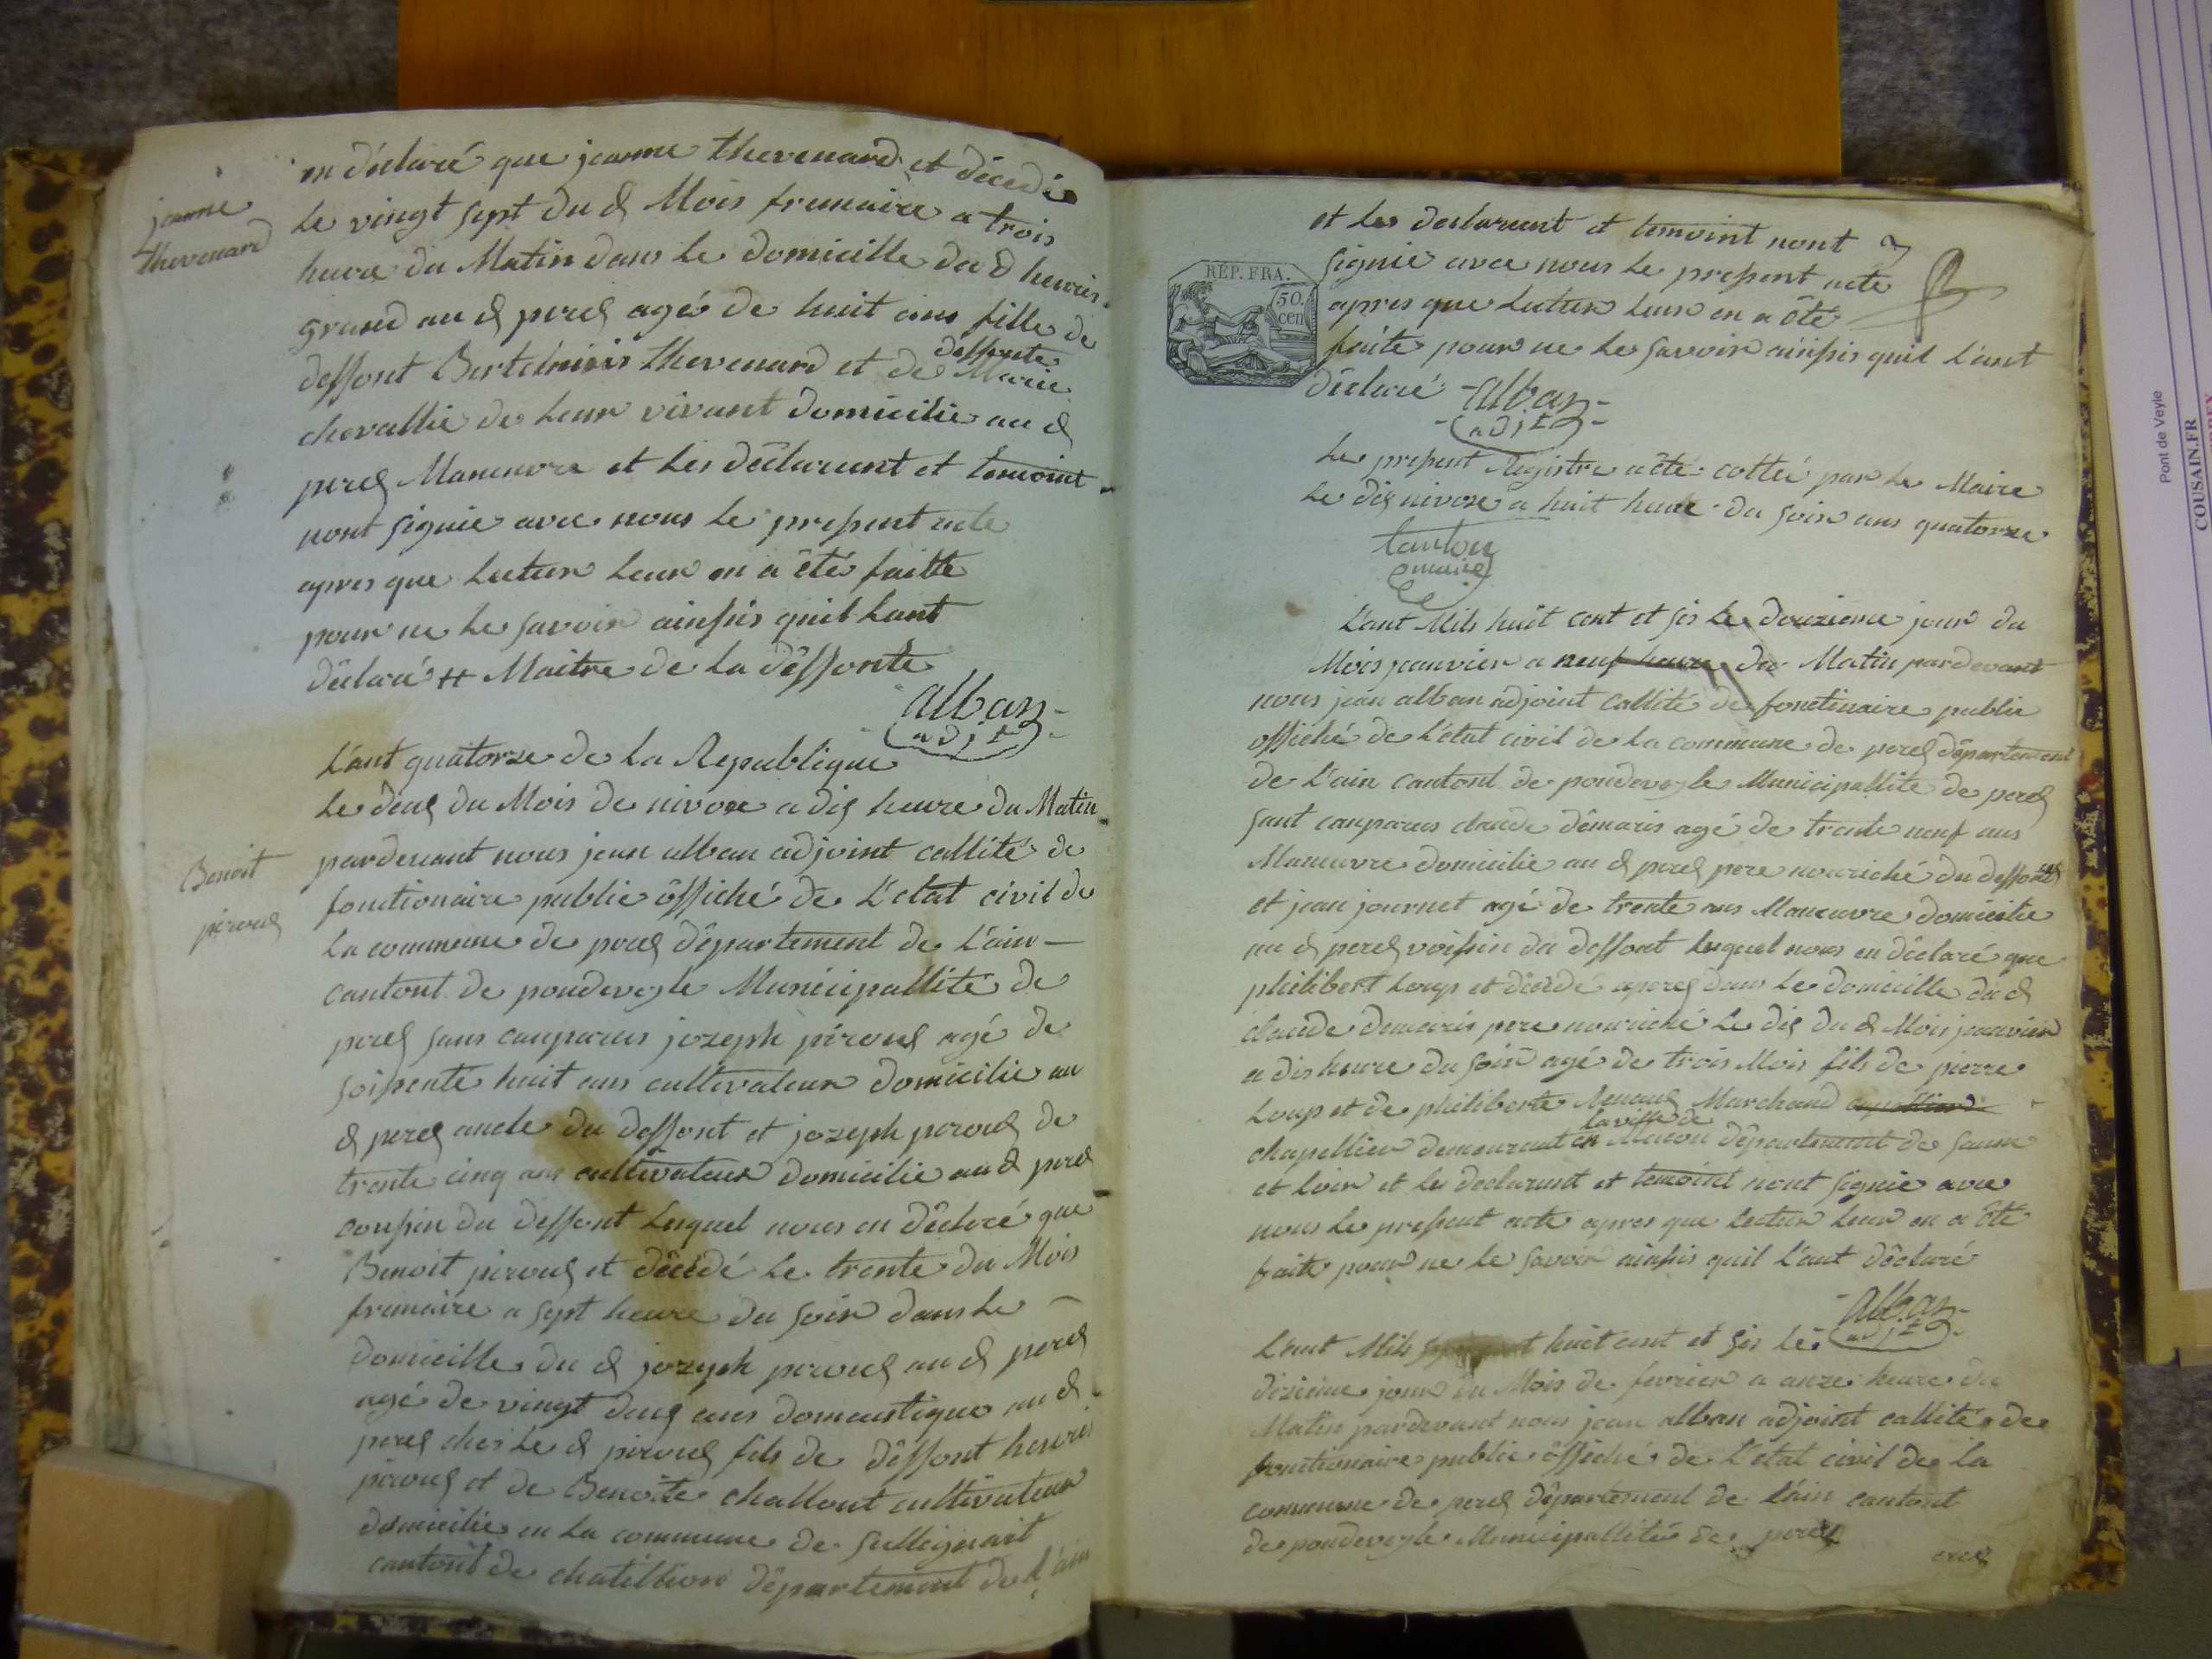 jeanne
thevenard
en déclaré que jeanne thevenard et décédé
le vingt sept du d Mois frumaire a trois
heure du Matin dans le domicille du d heuris
grand au d perex agé de huit ans fille de
deffont Bertelmis thevenard et de deffonte Marie
chevallie de leur vivant domicilie au d
perex Maneuvre et les déclarent et temoint
nont signie avec nous le present acte
apres que lecture leur en a été faitte
pour ne le savoir ainsis quil lant
déclaré ++ Maitre de la déffonte
alban
adjt
L'ant quatorze de la Republique
le deux du Mois de nivose a dix heure du Matin
Benoit
peroux
pardevant nous jean alban adjoint callité de
fonctionaire public ôffiché de L'etat civil de
la commune de perex département de L'ain
cantont de pondeveyle Municipallité de
perex sans canparus jozeph péroux agé de
soissente huit ans cultivateur domicilie au
d perex oncle du deffont et jozeph peroux de
trente cinq ans cultivateur domicilie au d perex
coussin du deffont lesquel nous en déclaré que
Benoit peroux et décédé le trente du Mois
frimaire a sept heure du soir dans le
domicille du d jozeph peroux au d perex
agé de vingt deux ans domaistique au d
perex ches le d péroux fils de déffont henris
péroux et de Benoite challont cultivateur
domicilie en la commune de sullignait
cantont de chatillion département de L'ain
et les declarent et temoint nont
signie avec nous le present acte
RÉP. FRA.
50.
cen
apres que lecture leur en a été
faite pour ne le savoir ainsis quil l'ant
déclaré alban
adjt
Le present Registre a été cottée par le Maire
le dix nivose a huit heure du soir ans quatorze
maire
L'ant Mils huit cent et sis le douzieme jour du
Mois janvier a neuf heure du Matin pardevant
nous jean alban adjoint callité de fonctinaire public
offiché de L'état civil de la commune de perex département
de L'ain cantont de pondeveyle Municipallité de perex
sant canparus claude démaris agé de trente neuf ans
Maneuvre domicilie au d perex pere nouriché du deffont
et jean journet agé de trente ans Maneuvre domicilie
au d perex voissin du deffont lesquel nous en déclaré que
philibert Loup et décédé aperex dans le domicille du d
claude demairis pere nouriché le dix du d Mois janvier
a dis heure du soir agé de trois Mois fils de pierre
Loup et de philiberte Renaux Marchand
chapellier demeurant en la ville de Macon département de saune
et loir et les declarent et temoint nont signie avec
nous le present acte apres que lectur leur en a été
faite pour ne le savoir ainsis quil l'ant déclaré
alban
adjt
L'ant Mils huit cent et sis le
dixieme jour du Mois de fevrier a anze heure du
Matin pardevant nous jean alban adjoint callité de
fonctionaire public ôffiché de L'etat civil de la
commune de perex département de L'ain cantont
de pondeveyle Municipallité de perex
Pont de Veyle
COUSAIN.FR